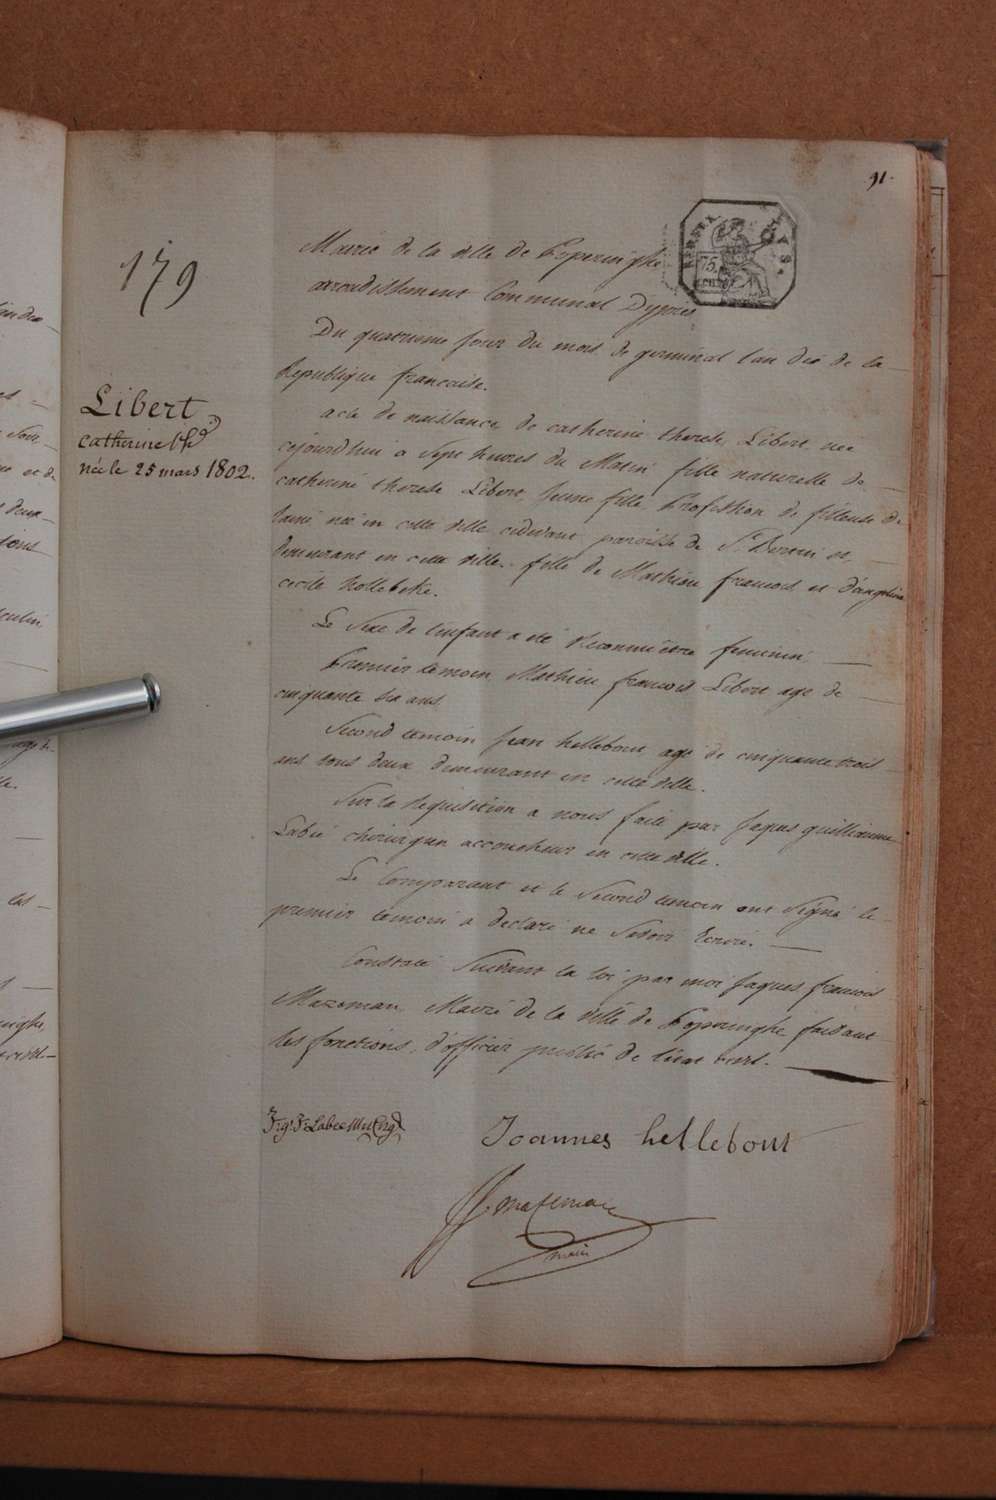 91.
179
Libert
catherine
née le 25 mars 1802.
75.
Mairie de la ville de Poperinghe
arrondissement Communal Dypres
Du quatrieme jour du mois de germinal l'an dix de la
Republique francaise.
acte de naissance de catherine therese Libert née
cejourdhui a Sept heures du Matin fille naturelle de
catherine therese Libert, jeune fille Profession de fileuse de
laine née in cette ville cidevant paroisse de St. Bertin et
demeurant en cette ville. fille de Mathieu francois et d'angeline
cecile hollebeke.
Le Sexe de l'enfant a été Reconnu être feminin.
Premier temoin Mathieu francois Libert age de
cinquante six ans.
Second temoin jean hellebout age de cinquante trois
ans tous deux demeurant en cette ville.
Sur la Requisition a nous faite par jaques guilliaume
Labie chirurgien accoucheur en cette ville.
Le Comparant et le Second temoin ont Signé le
premier temoin a declaré ne Savoir Ecrire.
Constaté Suivant la loi par moi jaques francois
Mazeman Maire de la ville de Poperinghe faisant
les fonctions d'officier public de l'etat civil.
Joannes hellebout
mazeman
maire